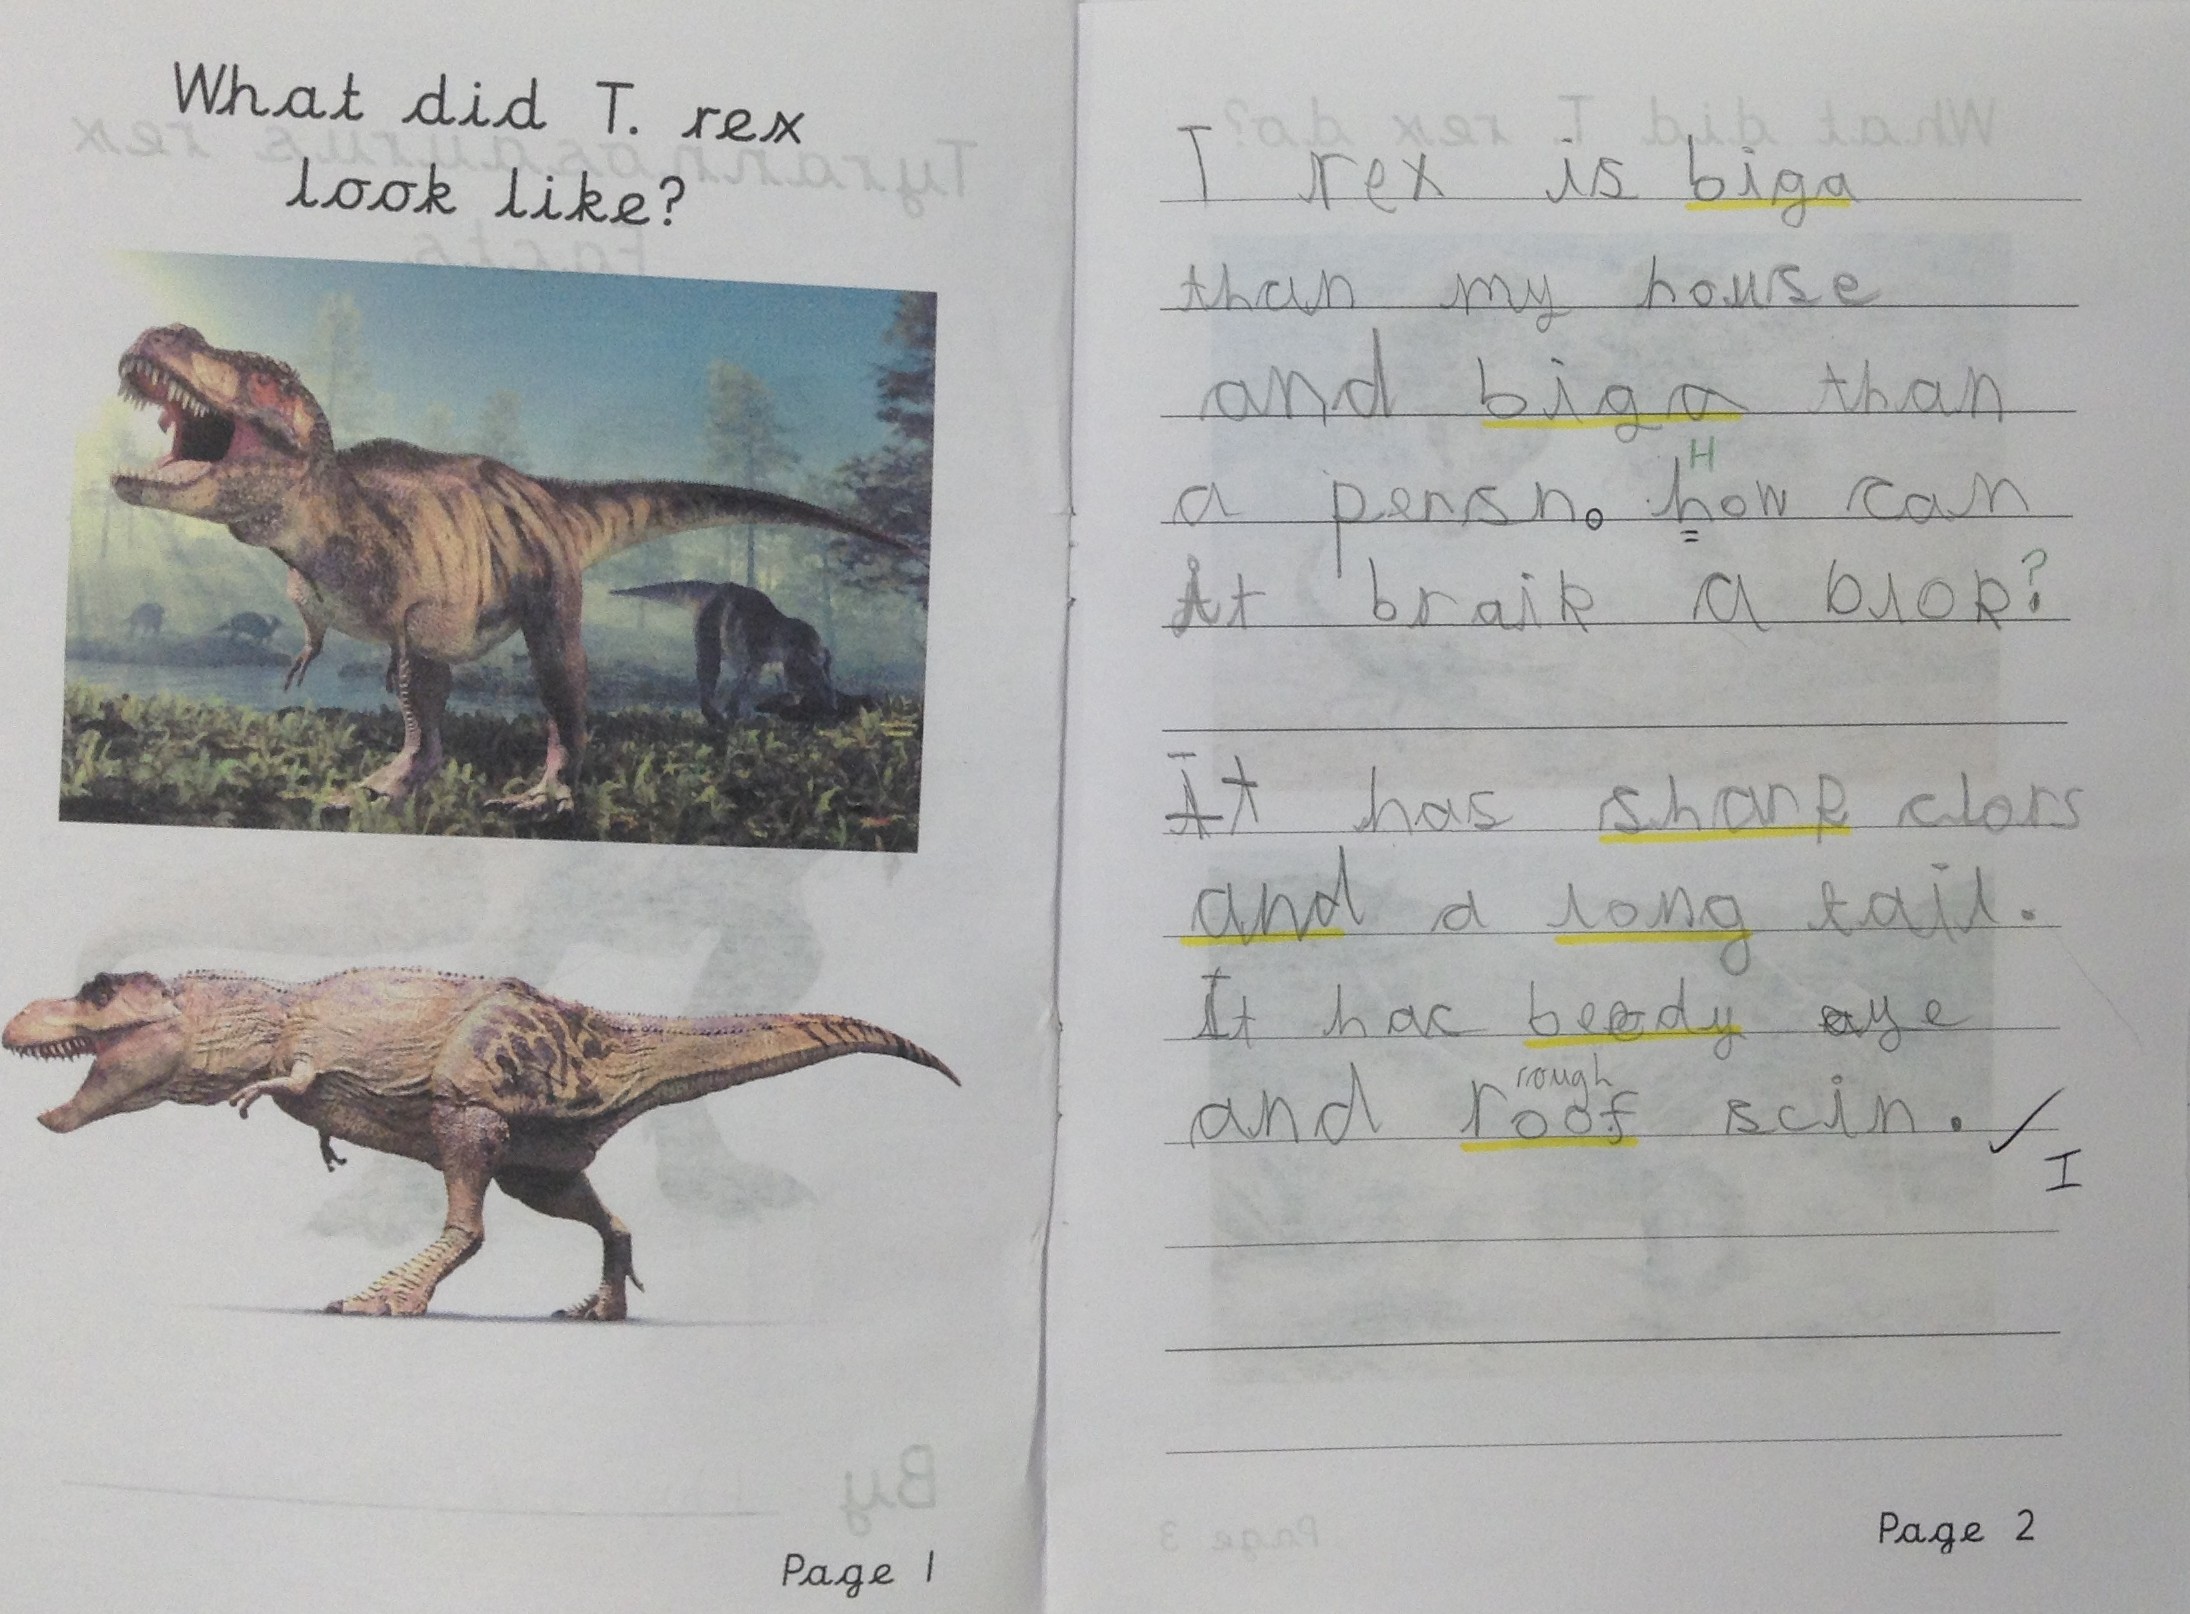 What did T. rex
look like?
Page 1
T rex is biga
than my house
and biga than
a persn. how can
H
it braik a blok?
It has sharp clors
and a long tail.
It hac beedy eye
rough
and roof scin. ✓
I
Page 2